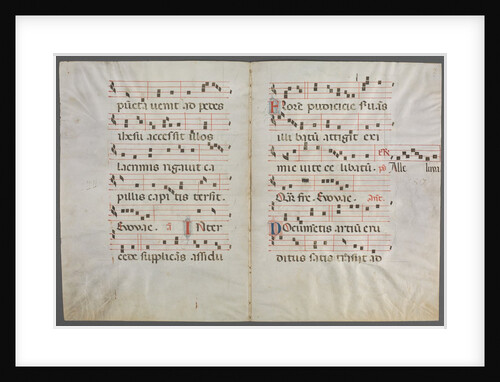 pūcta uenit ad pedes
ihesu accessit illos
lacrimis rigauit ca
pillis capi tis tersit.
Evovae. a Inter
cede supplicās assidu
Flore pudicicie suās
illi batū attigit exi
mie uite ce libatū. ps Alle luia
Dn̄i fre. Evovae. Ant.
Documētis artiū eru
ditus satis trāsiit ad